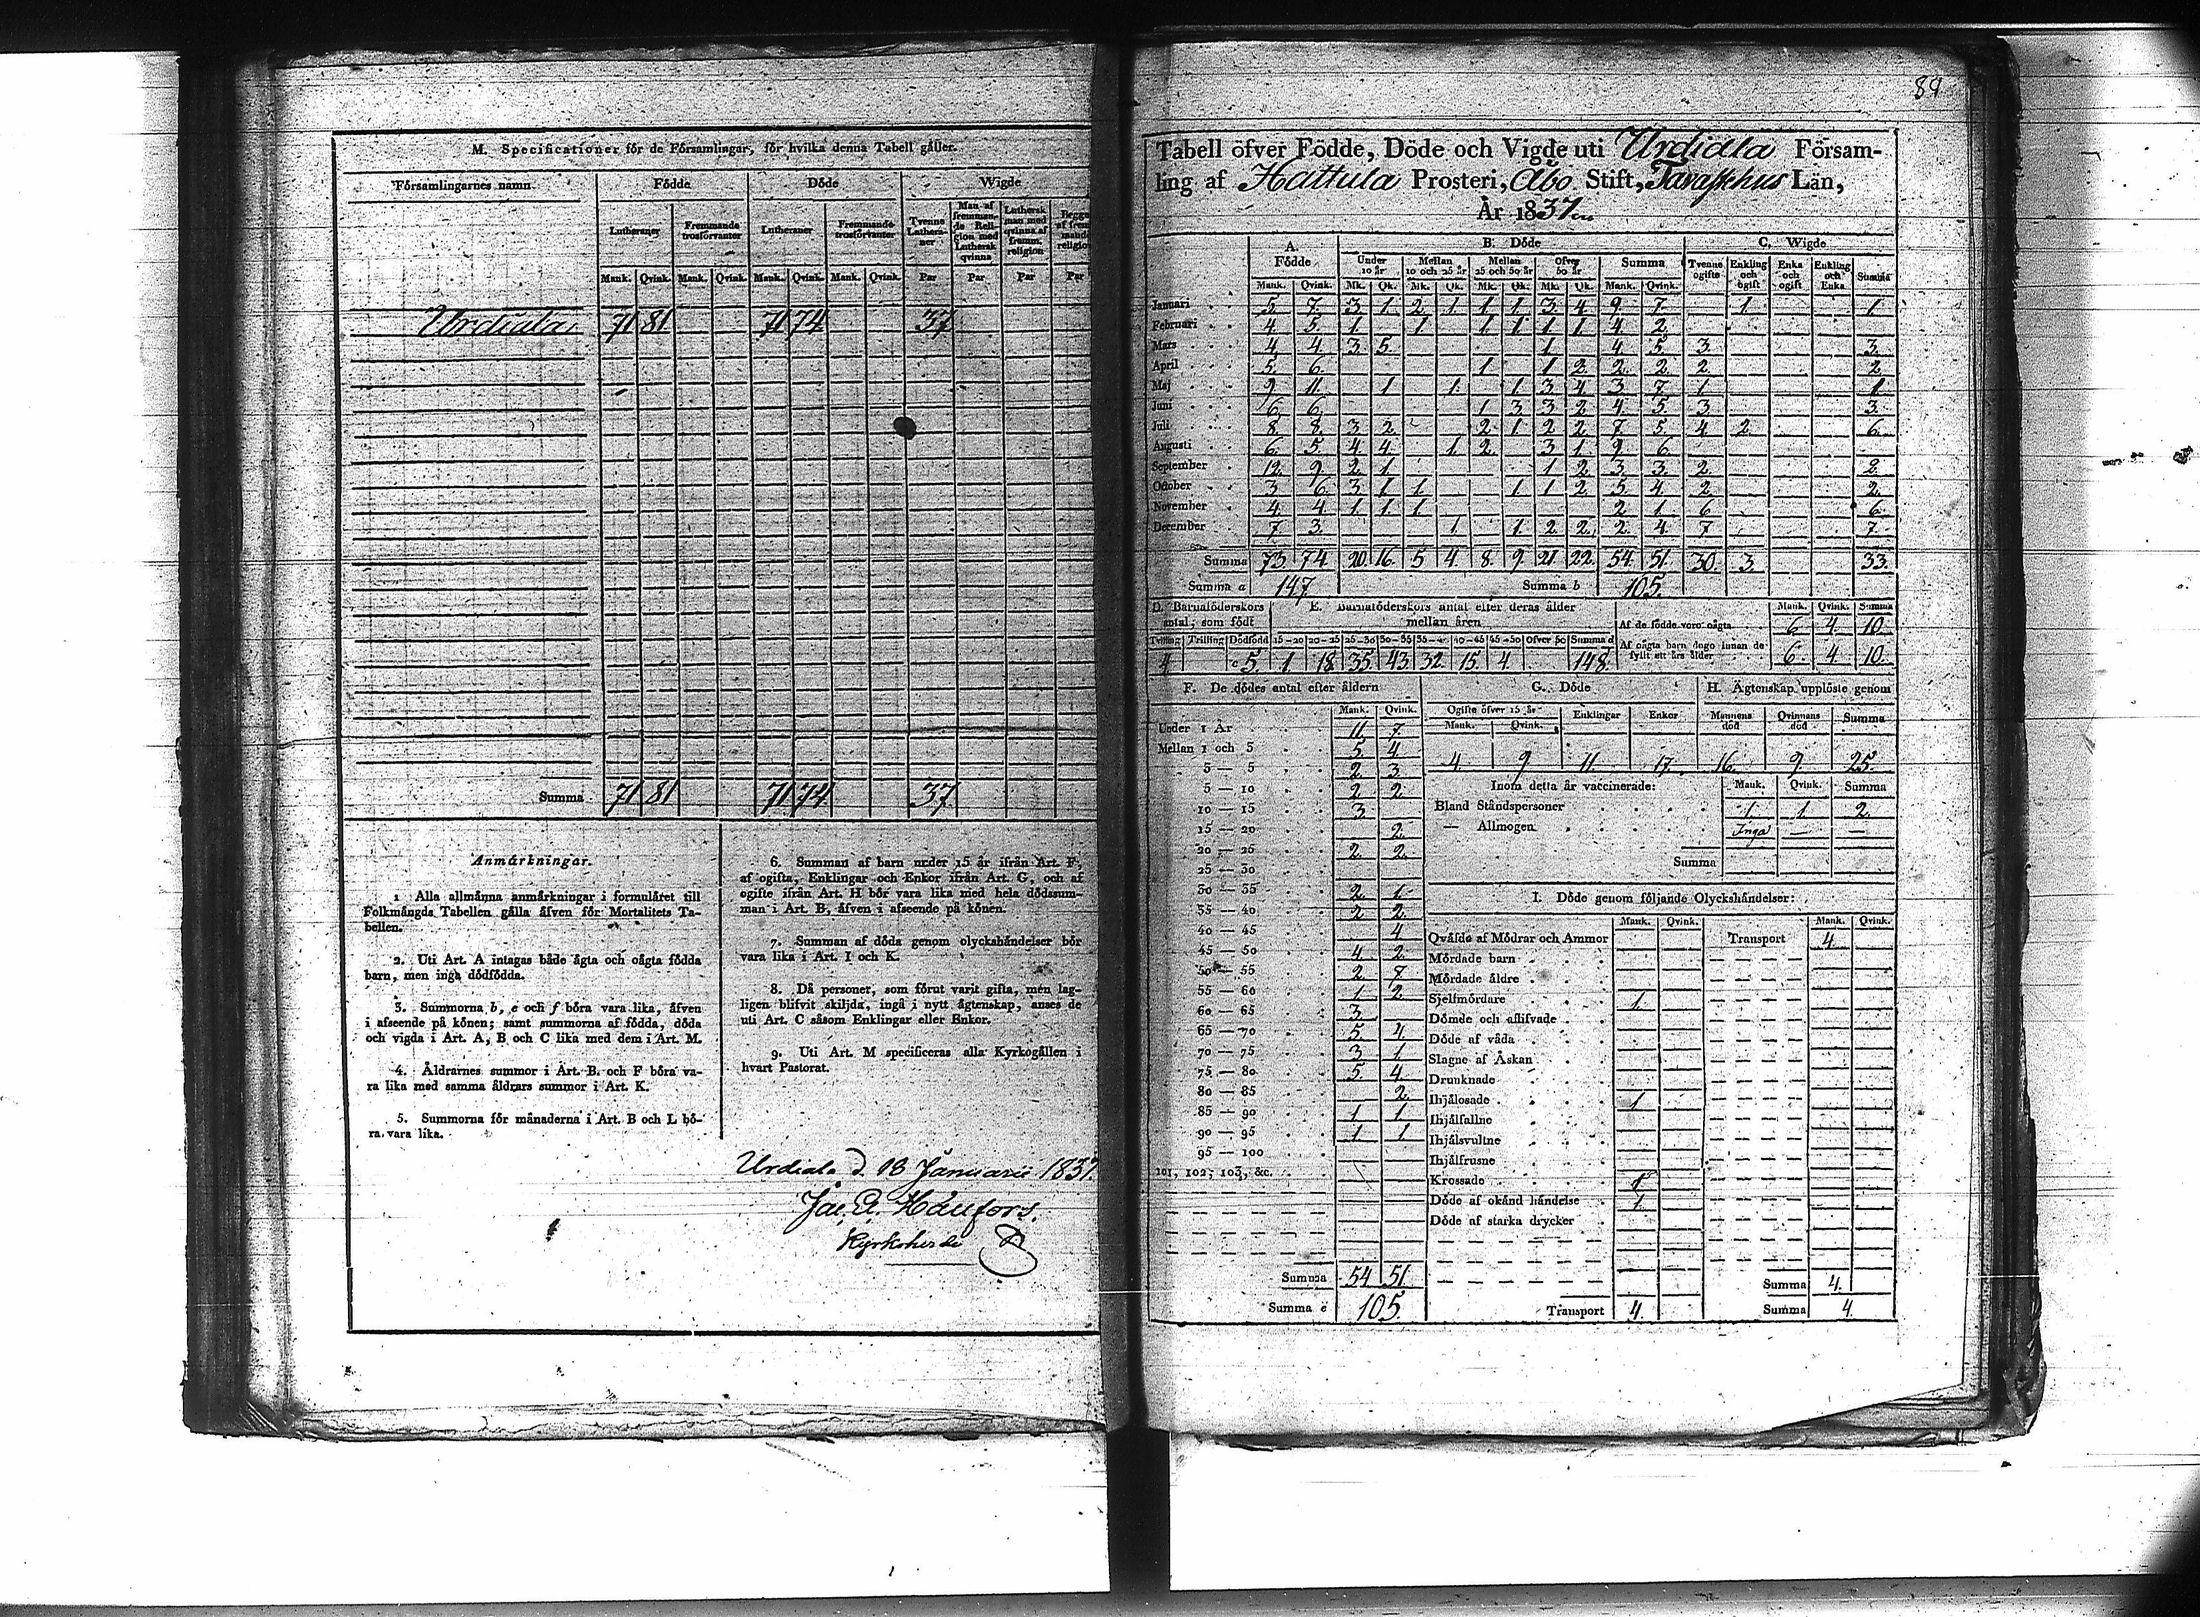 M. Specificationer för de Församlingar, för hvilka denna Tabell gäller.
Församlingarnes namn. Födde Döde Wigde
Lutheraner Fremmande trosförvanter Lutheraner Fremmande trosförvanter Tvenne Lutheraner Man af fremmande Religion med Luthersk qvinna Luthersk man med qvinna af fremm. religion
Mank. Qvink. Mank. Qvink. Mank. Qvink. Mank. Qvink. Par Par Par Par
Urdiala 71 81 71 74 37
Summa 71 81 71 74 37
Anmärkningar.
1 Alla allmänna anmärkningar i formuläret till
Folkmängds Tabellen gälla äfven för Mortalitets Ta-
bellen.
2. Uti Art. A intagas både ägta och oägta födda
barn, men inga dödfödda.
3. Summorna b, e och f böra vara lika, äfven
i afseende på könen; samt summorna af födda, döda
och vigda i Art. A, B och C lika med dem i Art. M.
4. Åldrarnes summor i Art. B. och F böra va-
ra lika med samma åldrars summor i Art. K.
5. Summorna för månaderna i Art. B och L bö-
ra vara lika.
6. Summan af barn under 15 år ifrån Art. F,
af ogifta, Enklingar och Enkor ifrån Art. G, och af
ogifte ifrån Art. H bör vara lika med hela dödssum-
man i Art. B, äfven i afseende på könen.
7. Summan af döda genom olyckshändelser bör
vara lika i Art. I och K.
8. Då personer, som förut varit gifta, men lag-
ligen blifvit skiljda, ingå i nytt ägtenskap, anses de
uti Art. C såsom Enklingar eller Enkor.
9. Uti Art. M specificeras alla Kyrkogällen i
hvart Pastorat.
Urdiala d. 18 Januarii 1837.
Kyrkoherde
89
Tabell öfver Födde, Döde och Vigde uti Urdiala Försam-
ling af Hattula Prosteri, Åbo Stift, Tavastehus Län,
År 1837
A. Födde B. Döde C. Wigde
Under 10 år Mellan 10 och 25 år Mellan 25 och 50 år Öfver 50 år Summa Tvenne ogifte Enkling och ogift Enka och ogift Enkling och Enka Summa
Mank. Qvink. Mk. Qk. Mk. Qk. Mk. Qk. Mk. Qk. Mank. Qvink.
Januari 5 7 3 1 2 1 1 1 3 4 9 7 1 1
Februari 4 5 1 1 1 1 1 1 4 2
Mars 4 4 3 5 1 4 5 3 3
April 5 6 1 1 2 2 2 2 2
Maj 9 11 1 1 1 3 4 3 7 1 1
Juni 6 6 1 3 3 2 4 5 3 3
Juli 8 8 3 2 2 1 2 2 7 5 4 2 6
Augusti 6 5 4 4 1 2 3 1 9 6
September 12 9 2 1 1 2 3 3 2 2
October 3 6 3 1 1 1 1 2 5 4 2 2
November 4 4 1 1 1 2 1 6 6
December 7 3 1 1 2 2 2 4 7 7
Summa 73 74 20 16 5 4 8 9 21 22 54 51 30 3 33
Summa a 147 Summa b 105
D. Barnaföderskors antal, som födt E. Barnaföderskors antal efter deras ålder mellan åren Mank. Qvink. Summa
Af de födde voro oägta 6 4 10
Tvilling Trilling Dödfödd 15-20 20-25 25-30 30-35 35-40 40-45 45-50 Öfver 50 Summa d
4 5 1 18 35 43 32 15 4 148
Af oägta barn dogo innan de fyllt ett års ålder 6 4 10
F. De dödes antal efter åldern
Mank. Qvink.
Under 1 År 11 7
Mellan 1 och 3 5 4
3 — 5 2 3
5 — 10 2 2
10 — 15 3
15 — 20 2
20 — 25 2 2
25 — 30
30 — 35 2 1
35 — 40 2 2
40 — 45 4
45 — 50 4 2
50 — 55 2 8
55 — 60 1 2
60 — 65 3
65 — 70 5 4
70 — 75 3 1
75 — 80 5 4
80 — 85 2
85 — 90 1 1
90 — 95 1 1
95 — 100
101, 102, 103, &c.
Summa 54 51
Summa e 105
G. Döde H. Ägtenskap upplöste genom
Ogifte öfver 15 år Enklingar Enkor Mannens död Qvinnans död Summa
Mank. Qvink.
4 9 11 17 16 9 25
Inom detta år vaccinerade: Mank. Qvink. Summa
Bland Ståndspersoner 1 1 2
— Allmogen Inga — —
Summa
I. Döde genom följande Olyckshändelser:
Mank. Qvink. Mank. Qvink.
Qväfde af Mödrar och Ammor Transport 4
Mördade barn
Mördade äldre
Sjelfmördare 1
Dömde och aflifvade
Döde af våda
Slagne af Åskan
Drunknade
Ihjälosade 1
Ihjälfallne
Ihjälsvultne
Ihjälfrusne
Krossade 1
Döde af okänd händelse 1
Döde af starka drycker
Summa 4
Transport 4 Summa 4